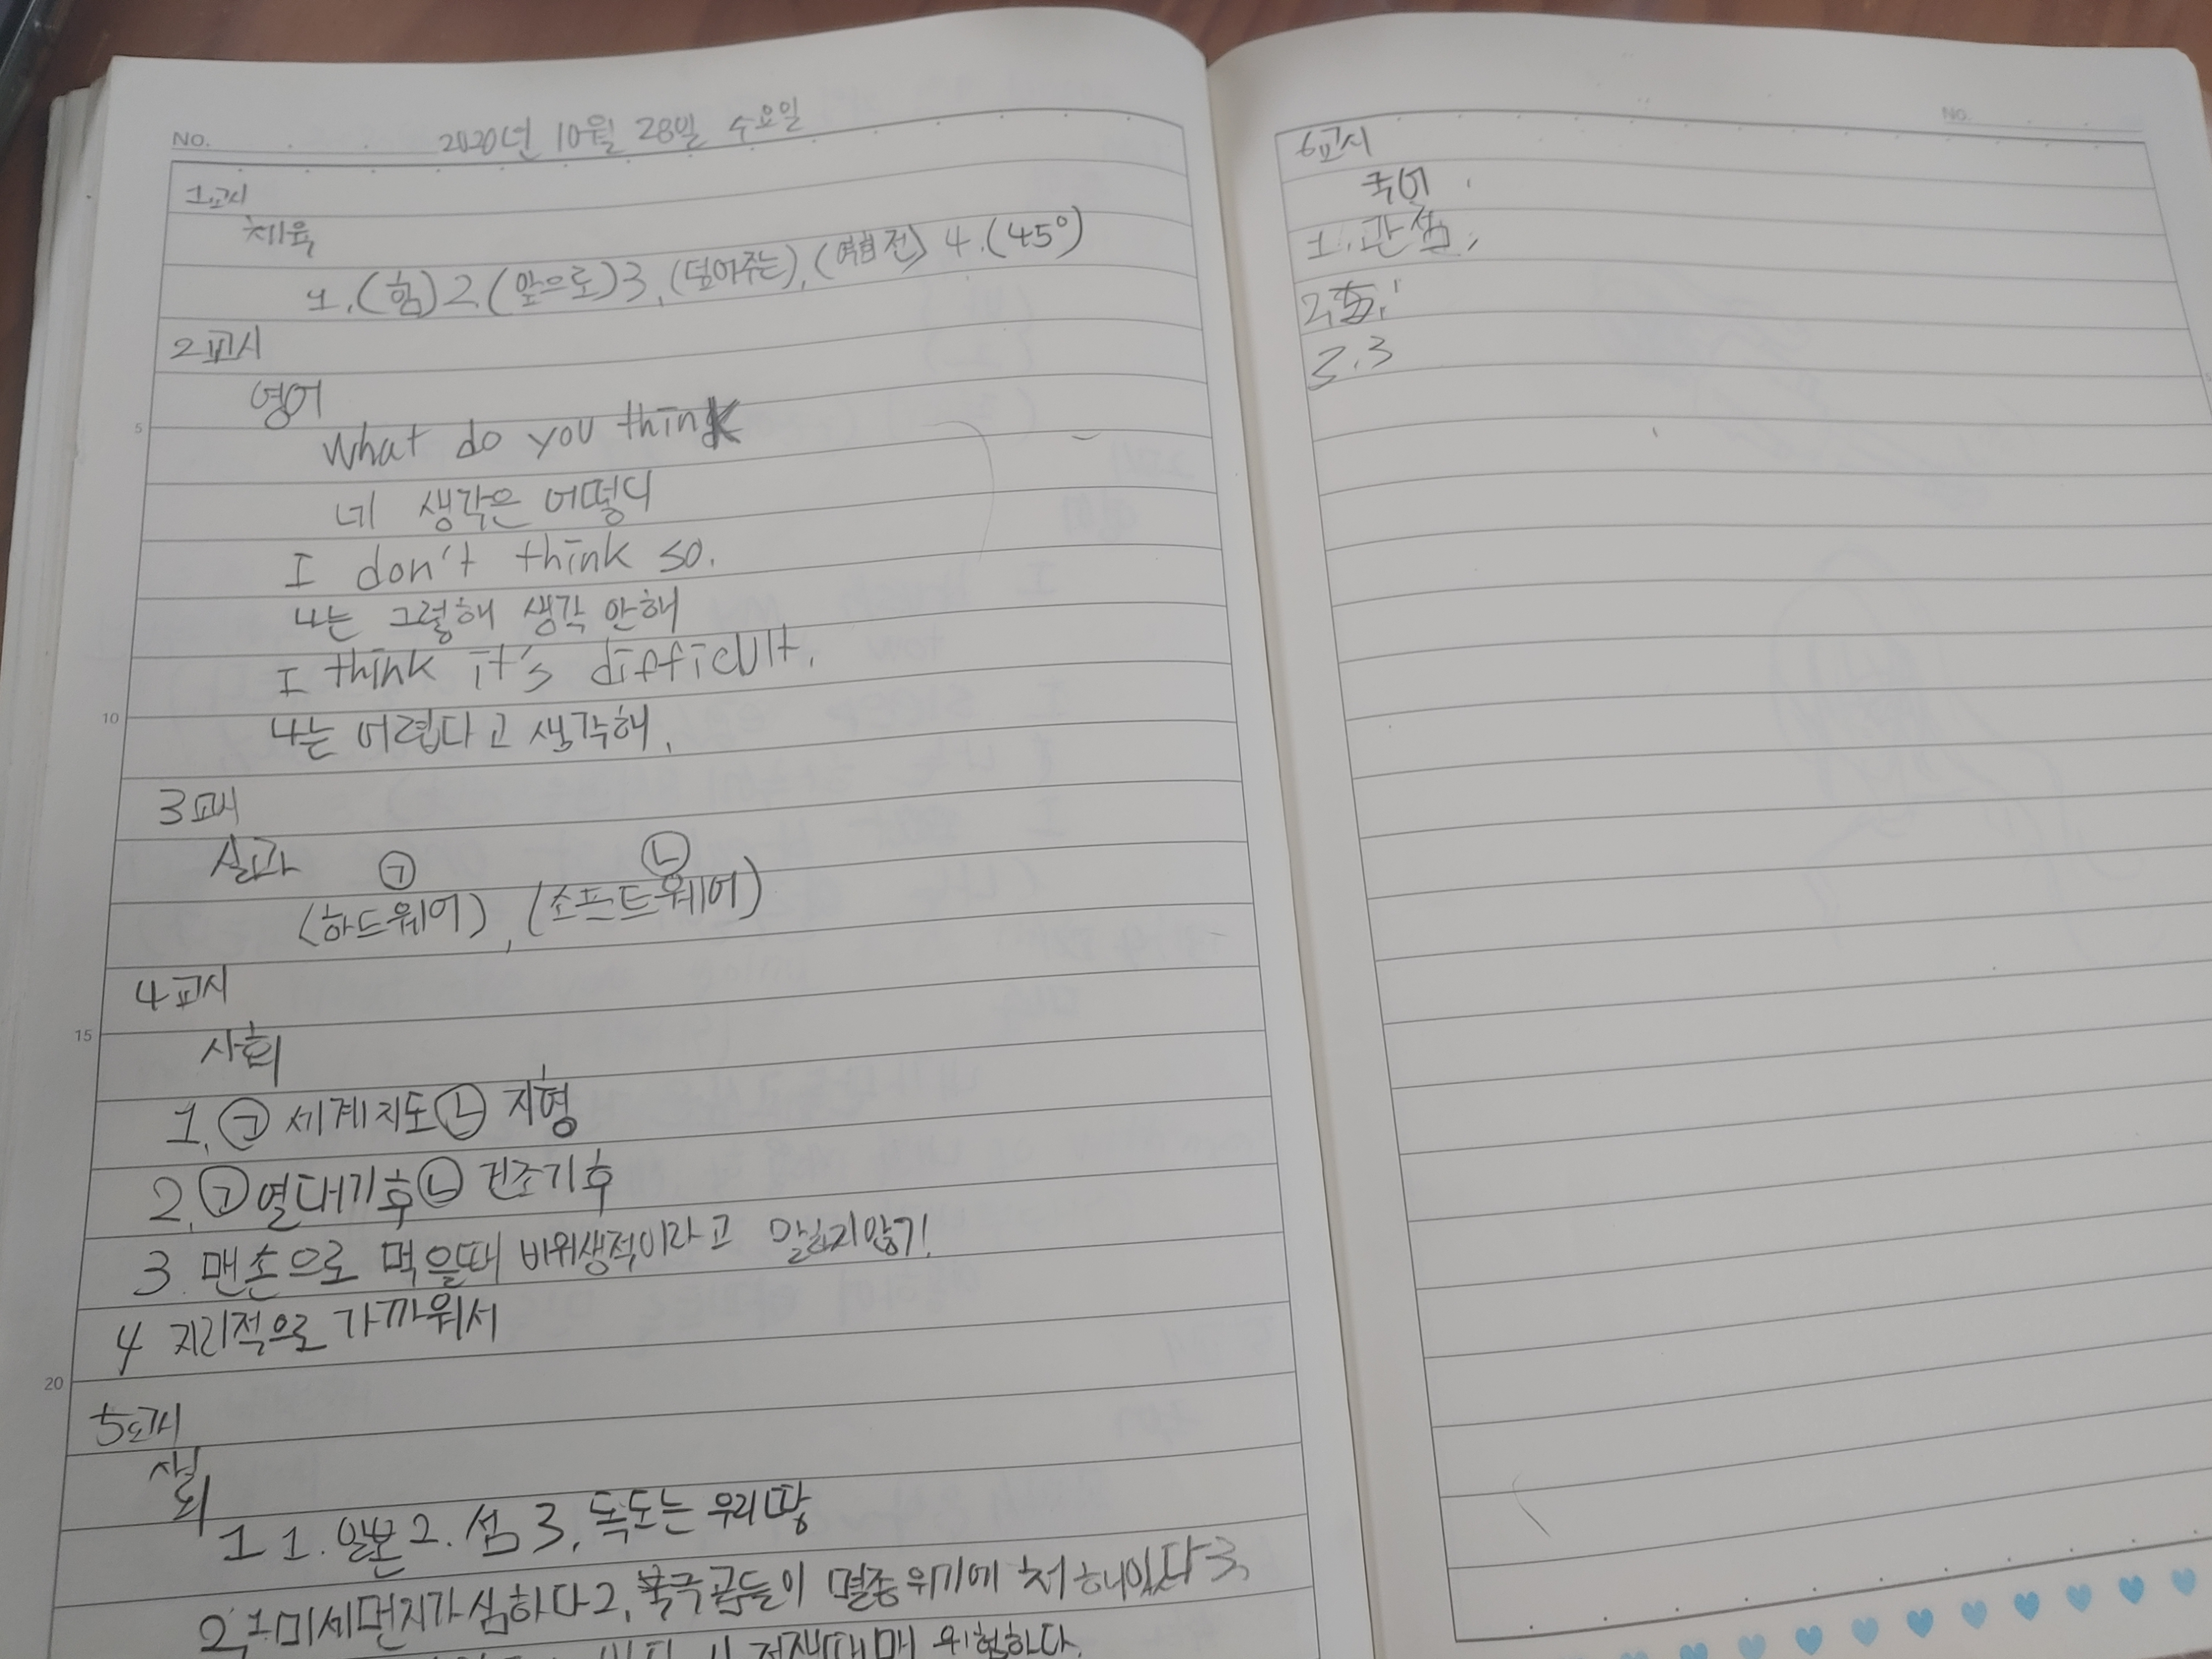 NO. 2020년 10월 28일 수요일
1교시
체육
1. (힘) 2. (앞으로) 3. (덮어주는), (전) 4. (45°)
2교시
영어
What do you think
네 생각은 어떻디
I don't think so.
나는 그렇해 생각 안해
I think it's difficult.
나는 어렵다고 생각해.
3교시
실과 ㉠ ㉡
(하드웨어), (소프트웨어)
4교시
사회
1. ㉠ 세계지도 ㉡ 지형
2. ㉠ 열대기후 ㉡ 건조기후
3. 맨손으로 먹을때 비위생적이라고 말하지않기!
4 지리적으로 가까워서
5교시
사회
1 1. 일본 2. 섬 3. 독도는 우리땅
2. 1 미세먼지가 심하다 2. 북극곰들이 멸종위기에 처해있다 3.
위험하다.
5
10
15
20
NO.
6교시
국어
1. 관점,
2.
3. 3